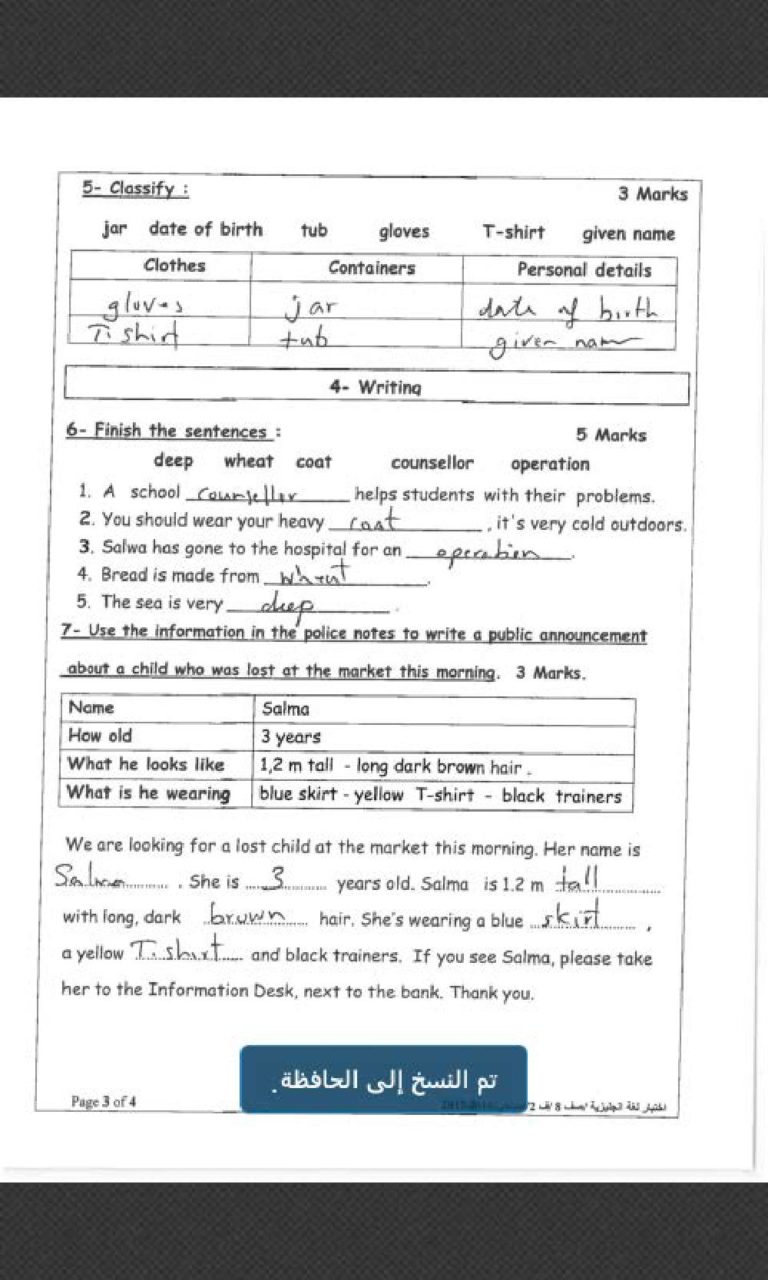 5- Classify : 3 Marks
jar date of birth tub gloves T-shirt given name
Clothes Containers Personal details
gloves jar date of birth
T. shirt tub given name
4- Writing
6- Finish the sentences : 5 Marks
deep wheat coat counsellor operation
1. A school counsellor helps students with their problems.
2. You should wear your heavy coat , it's very cold outdoors.
3. Salwa has gone to the hospital for an operation .
4. Bread is made from wheat .
5. The sea is very deep .
7- Use the information in the police notes to write a public announcement
about a child who was lost at the market this morning. 3 Marks.
Name Salma
How old 3 years
What he looks like 1,2 m tall - long dark brown hair .
What is he wearing blue skirt - yellow T-shirt - black trainers
We are looking for a lost child at the market this morning. Her name is
Salma . She is 3 years old. Salma is 1.2 m tall
with long, dark brown hair. She's wearing a blue skirt ,
a yellow T. shirt and black trainers. If you see Salma, please take
her to the Information Desk, next to the bank. Thank you.
تم النسخ إلى الحافظة.
Page 3 of 4 اختبار لغة انجليزية /صف 8 /ف 2